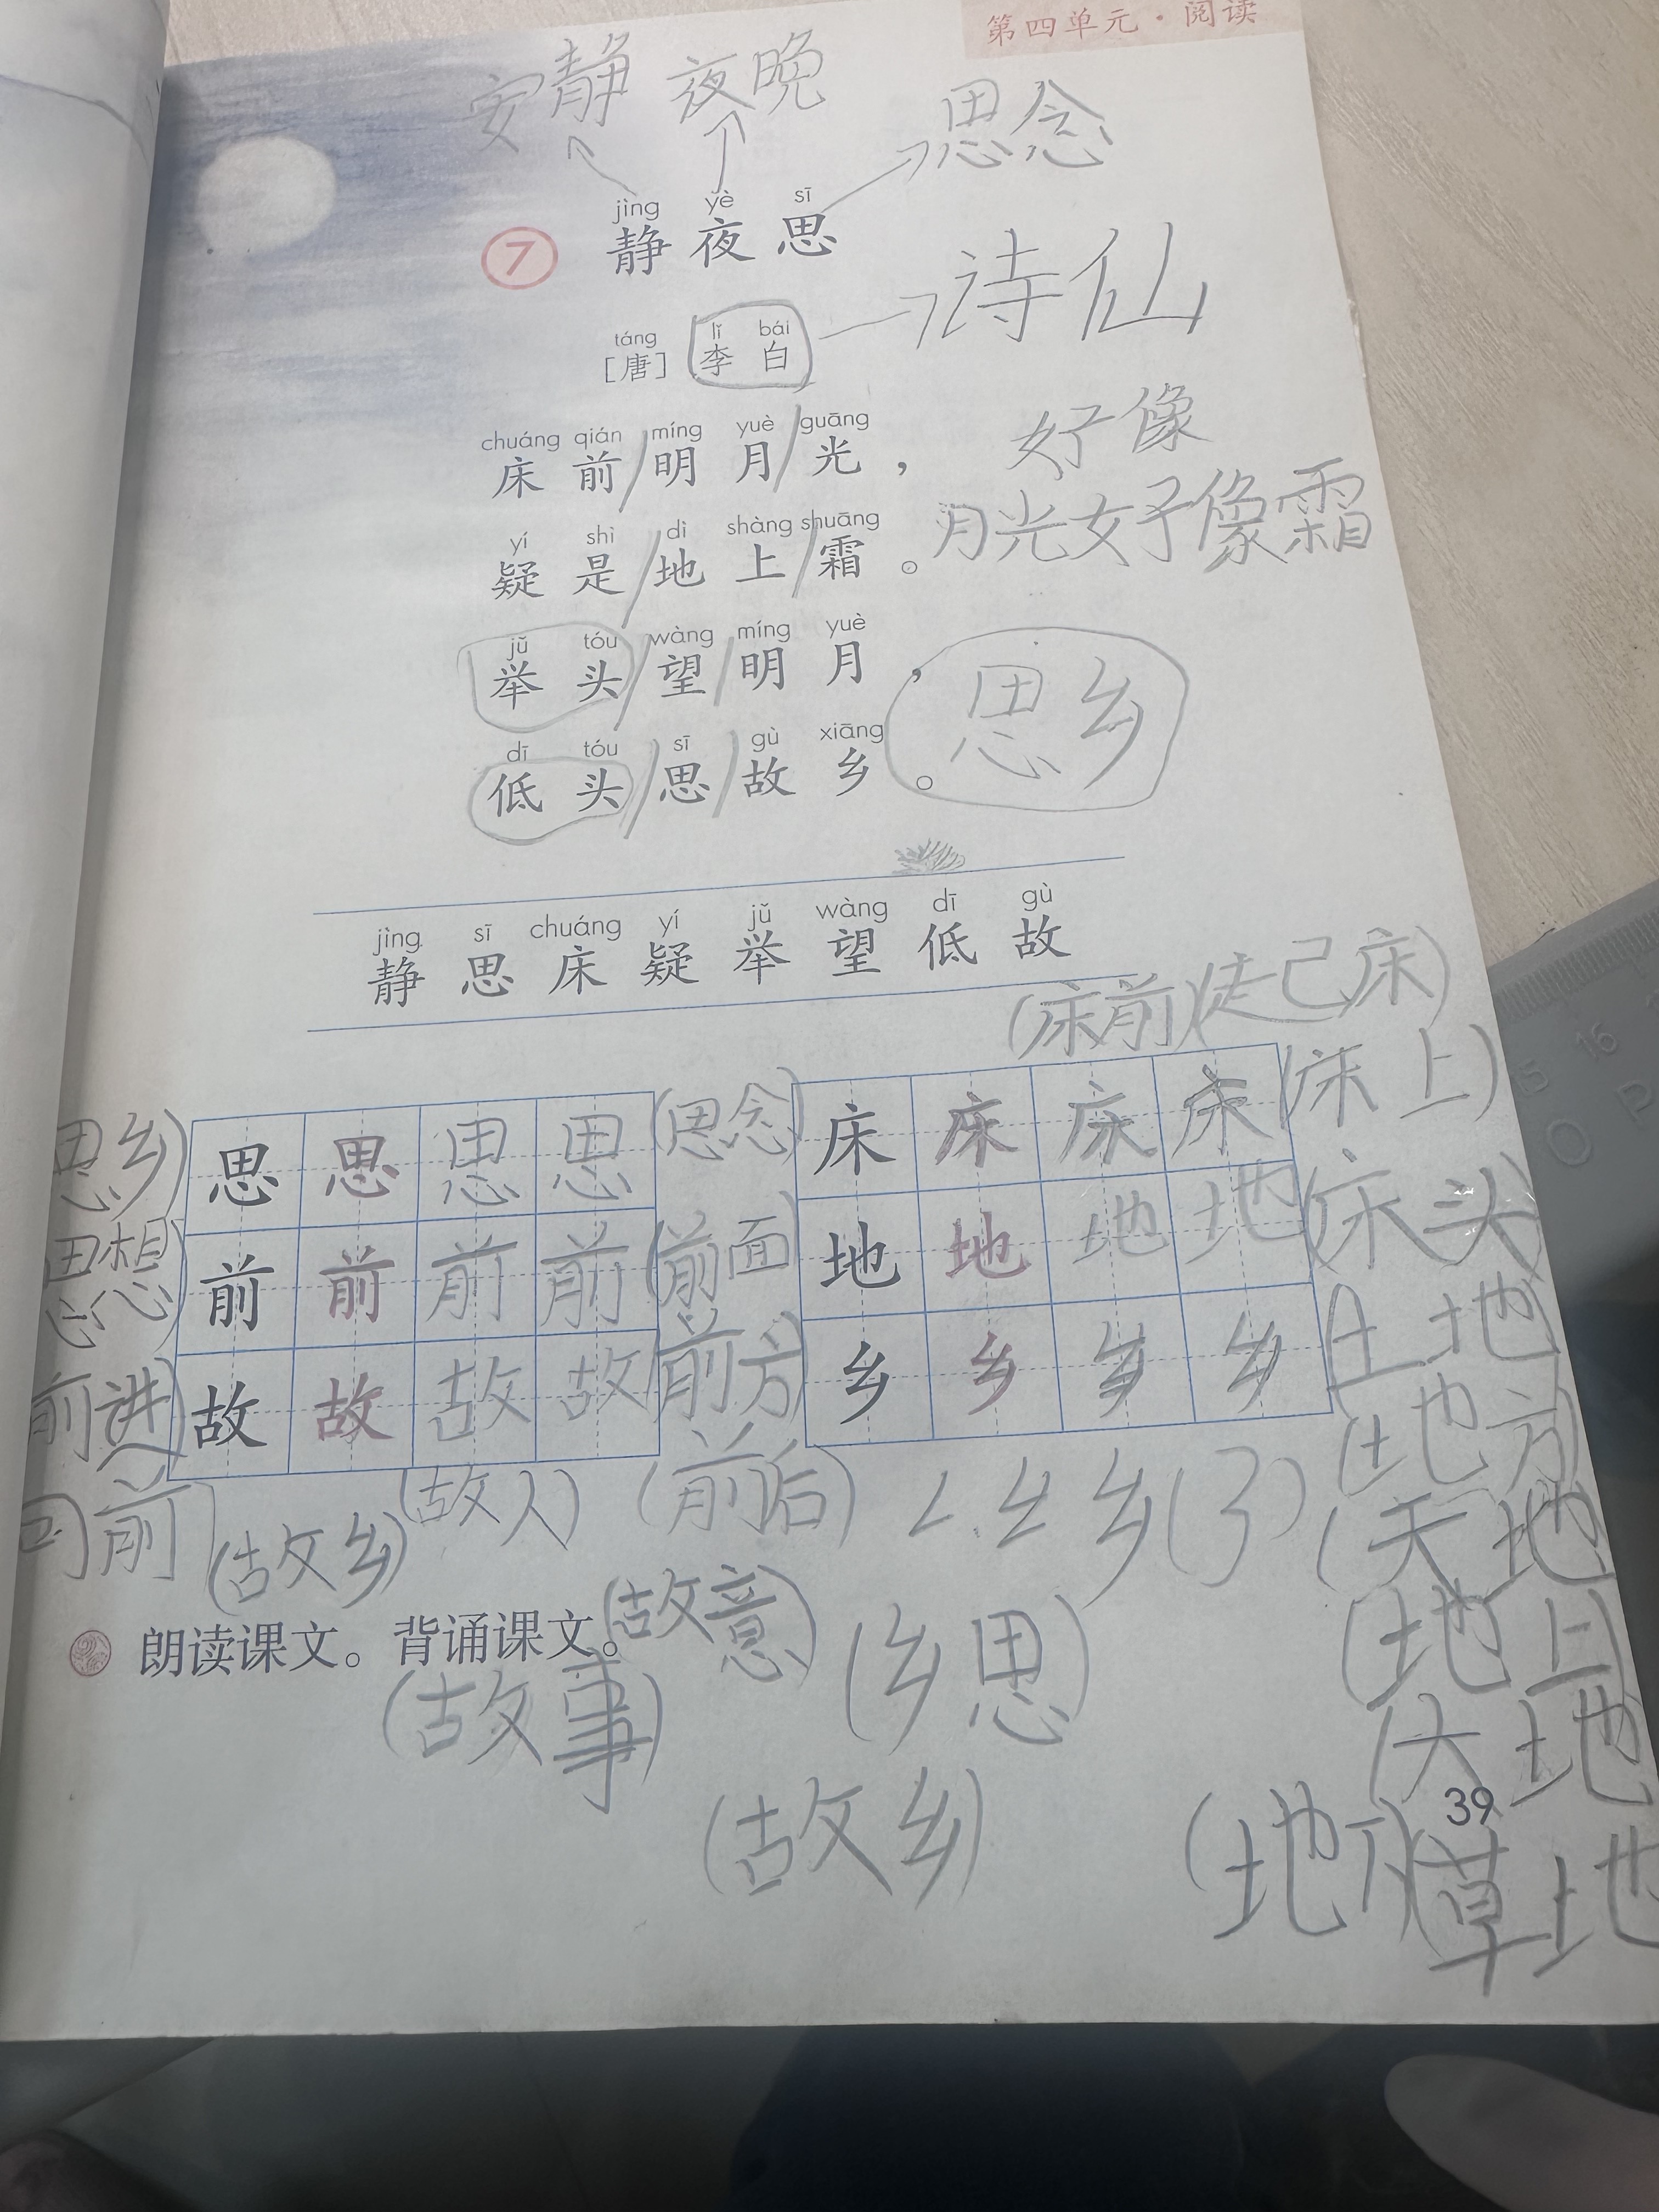 第四单元·阅读
安静 夜晚
思念
jìng yè sī
7 静夜思
诗仙
táng lǐ bái
[唐] 李白
chuáng qián míng yuè guāng
床前/明月/光， 好像
yí shì dì shàng shuāng
疑是/地上/霜。 月光好像霜
jǔ tóu wàng míng yuè
举头/望/明月，
思乡
dī tóu sī gù xiāng
低头/思/故乡。
jìng sī chuáng yí jǔ wàng dī gù
静 思 床 疑 举 望 低 故
(床前) 床)
思乡) 思 思 思 思 (思念) 床 床 床 床 (床上)
思想) 前 前 前 前 (前面) 地 地 地 地 (床头)
前进) 故 故 故 故 (前方) 乡 乡 乡 乡 (土地)
(地方)
前 (故乡) (故人) (前后) 乡 (天地)
朗读课文。背诵课文。
(故意) (乡思) (地上)
(故事) (大地)
(故乡) (地下) (草地
39